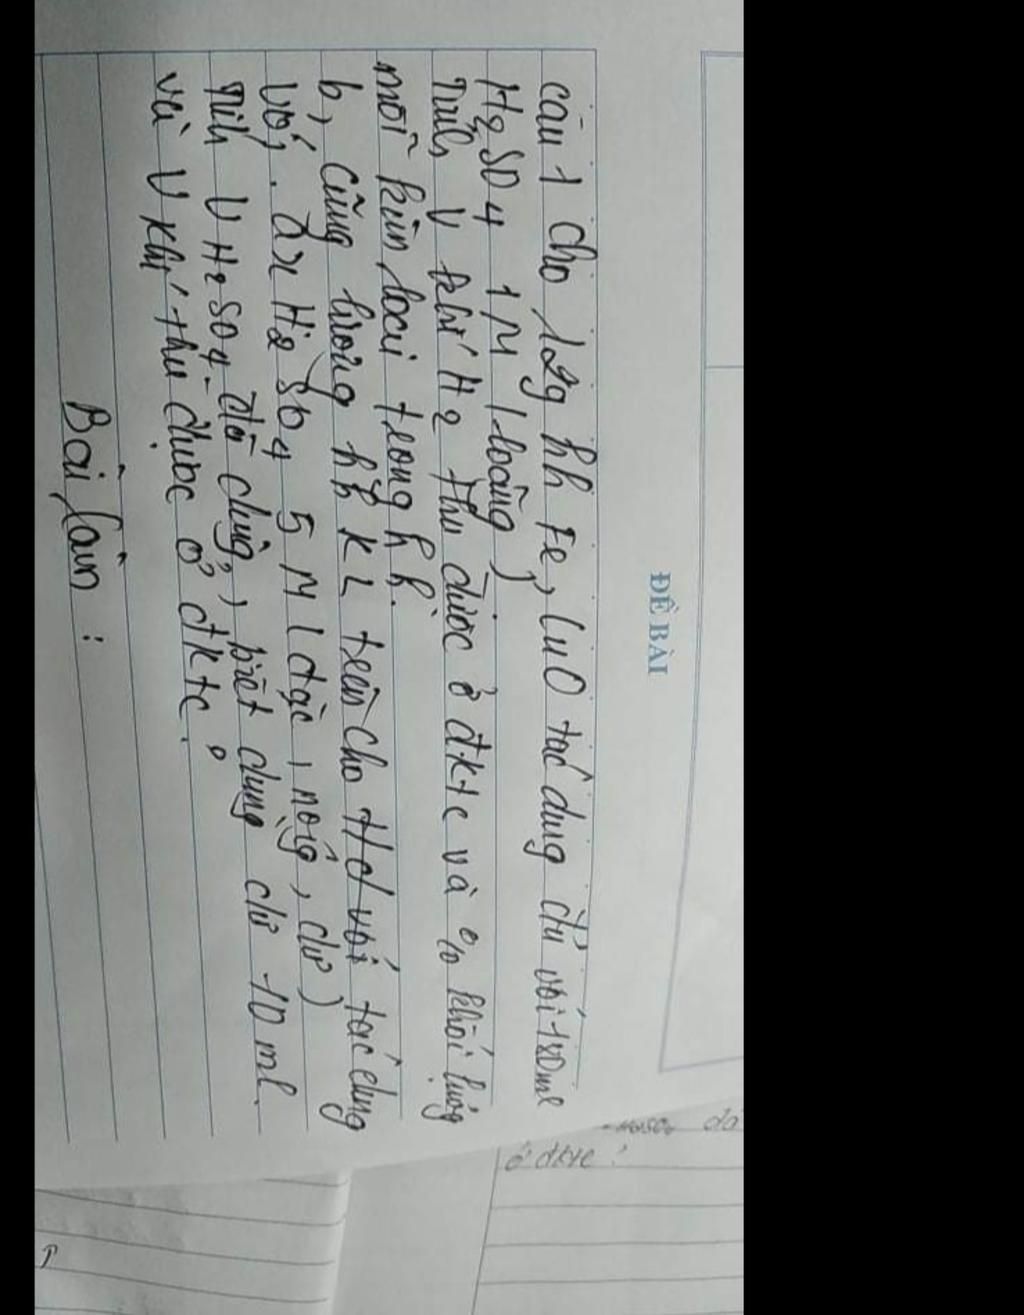 ĐỀ BÀI
câu 1 Cho 12g hh Fe, CuO tác dụng đủ với 180ml
H2SO4 1M (loãng)
Tính V khí H2 thu được ở đktc và % khối lượng
mỗi kim loại trong hh.
b, Cũng lượng hh KL trên cho td với tác dụng
với. dd H2SO4 5M (đặc, nóng, dư)
Tính V H2SO4 đã dùng, biết dùng dư 10ml.
và V khí thu được ở đktc.
Bài làm:
ở đktc?